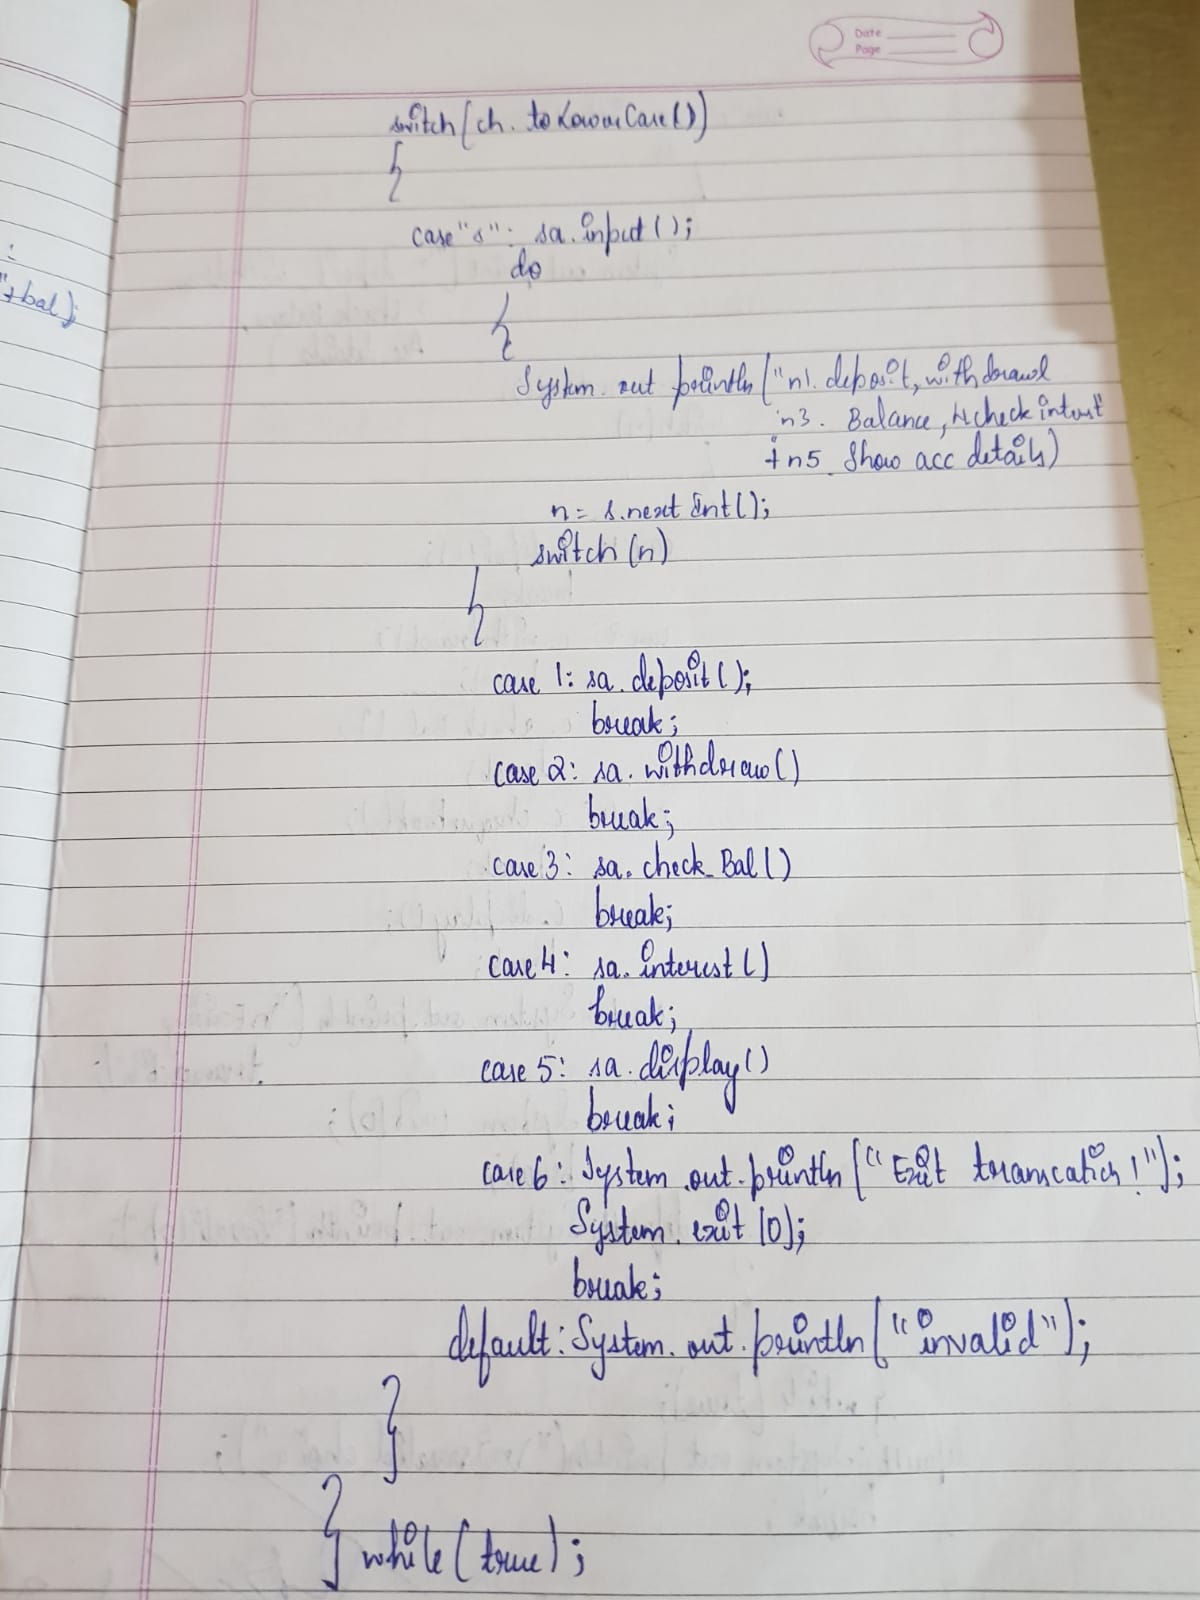 Date
Page
switch(ch.toLowerCase())
{
:
"+bal);
case "s": sa.input();
do
{
System.out println("n1. deposit, withdrawl
\n3. Balance, 4check interest
+n5 Show acc details)
n= s.next Int();
switch(n)
{
case 1: sa.deposit();
break;
case 2: sa.withdraw()
break;
case 3: sa.check_Bal()
break;
case 4: sa.interest()
break;
case 5: sa.display()
break;
case 6: System.out.println("Exit !");
System.exit(0);
break;
default: System.out.println("invalid");
}
} while(true);